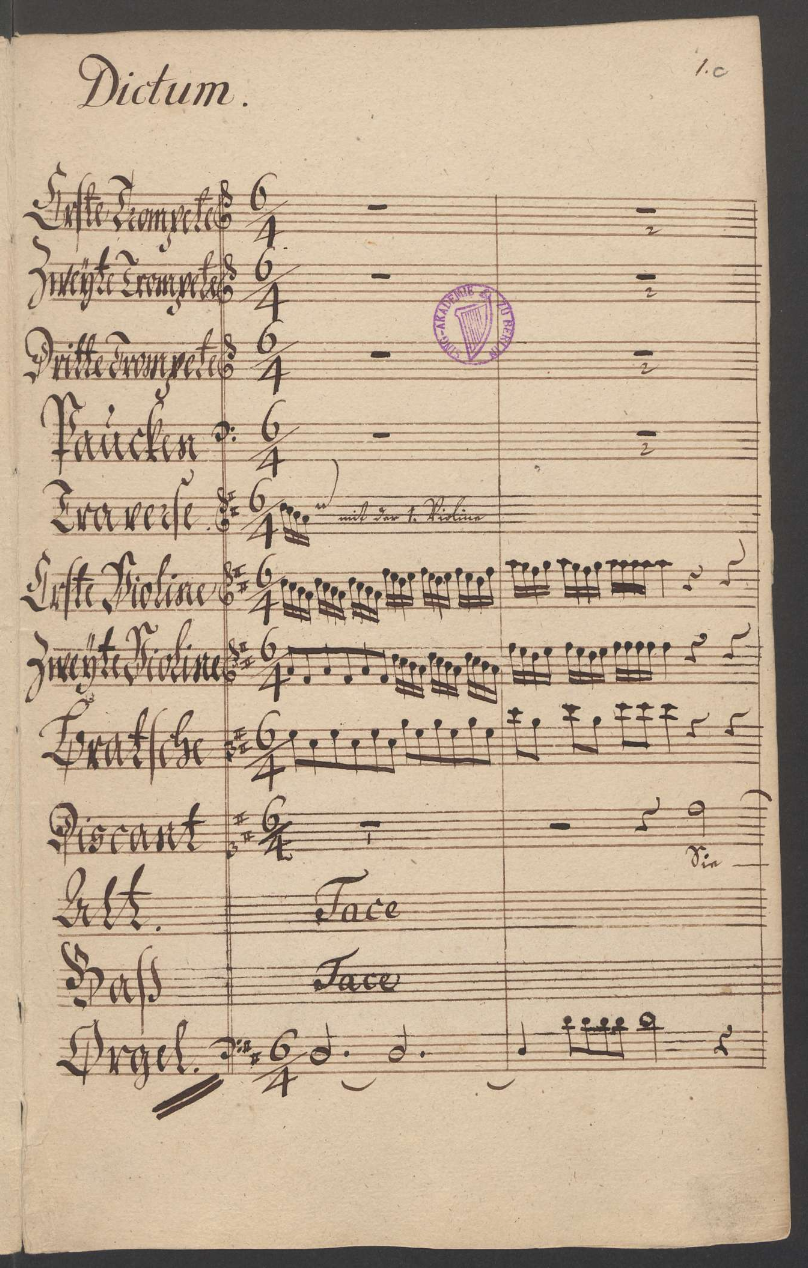 1.c
Dictum.
Erste Trompete 6/4
2
Zweyte Trompete 6/4
2
SING-AKADEMIE ZU BERLIN
Dritte Trompete 6/4
2
Paucken 6/4
2
Traverse. 6/4 mit der 1. Violine
Erste Violine 6/4
Zweyte Violine 6/4
Bratsche 6/4
Discant 6/4
Sie
Alt. Tace
Baß Tace
Orgel. 6/4